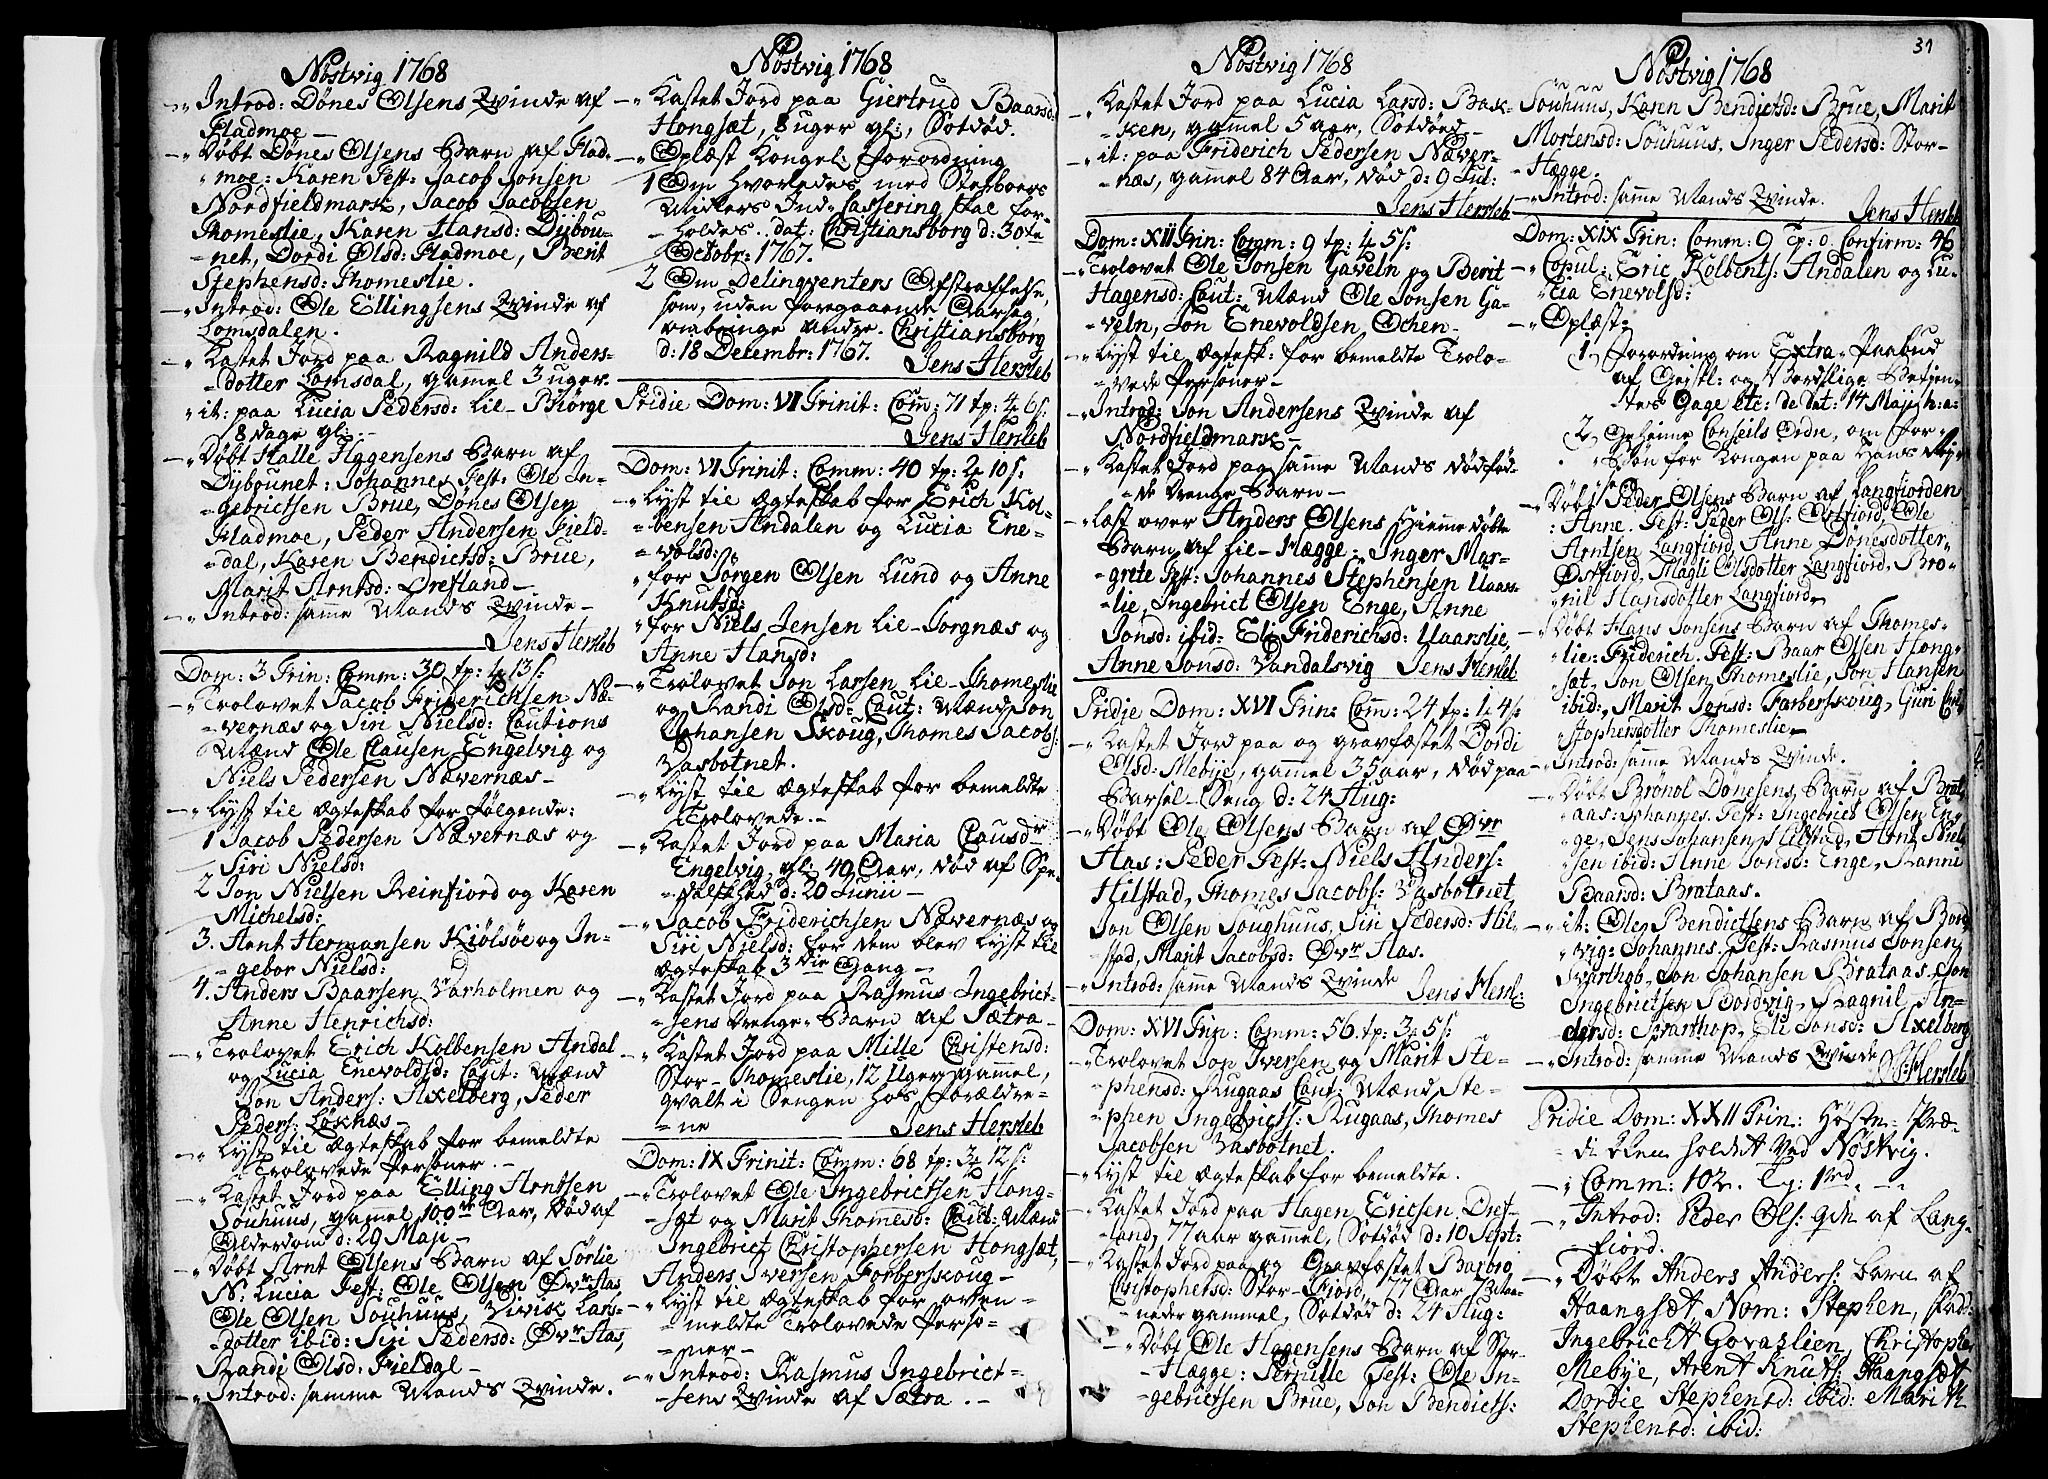 Nöstvig 1768
-„ Introd: Dönes Olsens Qvinde af
Fladmoe —
-„ Döbt Dönes Olsens Barn af Flad-
„moe: Karen Fest: Jacob Jonsen
Nordfieldmark, Jacob Jacobsen
Thomeslie, Karen Hansd: Dÿbou-
„net, Dordi Olsd: Fladmoe, Berit
Stephensd: Thomeslie.
-„ Introd: Ole Ellingsens Qvinde af
Lomsdalen.
-„ Kastet Jord paa Ragnild Anders-
„dotter Lomsdal, gammel 3 uger.
„ it: paa Lucia Pedersd: Lie-Biörge
8 dage gl: -
-„ Döbt Halle Hagensens Barn af
Dÿbounet: Johannes Fest: Ole In-
„gebrictsen Brue, Dönes Olsen
Fladmoe, Peder Andersen Field-
„dal, Karen Bendictsd: Brue,
Marit Arntsd: Drefland —
-„ Introd: samme Mands Qvinde —
Jens Hersleb
Dom: 3 Trin: Comm: 30 tp: 1 13 s:
-„ Trolovet Jacob Friderichsen Næ-
„vernæs og Siri Nielsd: Cautions
Mænd Ole Clausen Engelvig og
Niels Pedersen Nævernæs —
-„ Lyst til Ægteskab for følgende:
1 Jacob Pedersen Nævernæs og
Siri Nielsd:
2 Jon Nielsen Reinfiord og Karen
Michelsd:
3. Arnt Hermansen Kiölsöe og In-
„gebor Nielsd:
4. Anders Baarsen Varholmen og
Anne Henrichsd:
-„ Trolovet Erich Kolbensen Andal
og Lucia Enevoldsd: Caut: Mænd
Jon Anders: Axelberg, Peder
Peders: Löknæs —
-„ Lyst til Ægteskab for bemeldte
Trolovede Personer. -
-„ Kastet Jord paa Elling Arntsen
Souhuus, gammel 100 Aar, død af
Alderdom d: 29 Maji —
-„ Döbt Arnt Olsens Barn af Sörlie
N: Lucia Fest: Ole Olsen Övr Aas
Ole Olsen Souhuus, Lars-
„dotter ibid: Siri Pedersd: Övr Aas,
Randi Olsd: Fieldal —
-„ Introd: samme Mands Qvinde.
Nöstvig 1768
-„ Kastet Jord paa Giertrud Baarsd:
Hongsæt, 8 uger gl:, Sotdød.
-„ Oplæst Kongel: Forordning
1 Om Hvorledes med Sterboers
Midlers Ind-Cassering skal for-
„holdes. dat: Christiansborg d: 30te
Octobr: 1767.
2 Om Delinqventers Afstraffelse,
som, uden foregaaende Aarsag,
ombringe andre. Christiansborg
d: 18 Decembr: 1767.
Jens Hersleb
Pridie Dom: VI Trinit: Com: 71 tp: 4 6 s:
Jens Hersleb
Dom: VI Trinit: Comm: 40 tp: 2 10 s:
-„ Lyst til Ægteskab for Erich Kol-
„bensen Andalen og Lucia Ene-
„volsd:
„ for Jörgen Olsen Lund og Anne
Knutsd:
„ for Niels Jensen Lie-Torgnæs og
Anne Hansd:
-„ Trolovet Jon Larsen Lie-Thomeslie
og Randi Olsd: Caut: Mænd Jon
Johansen Skoug, Thomes Jacobs:
Vasbotnet.
-„ Lyst til Ægteskab for bemeldte
Trolovede. -
-„ Kastet Jord paa Maria Clausdr
Engelvig, gl: 40 Aar, død af Spe-
„dalskhed d: 20 Junii —
-„ Jacob Friderichsen Nævernæs og
Siri Nielsd: for dem blev lyst til
Ægteskab 3die Gang —
-„ Kastet Jord paa Rasmus Ingebrict-
„sens Drenge-Barn af Sætra —
-„ Kastet Jord paa Mille Christensd:
Stor-Thomeslie, 12 Uger gammel,
qvalt i Sengen hos Forældre-
„ne Jens Hersleb
Dom: IX Trinit: Comm: 68 tp: 3 12 s:
-„ Trolovet Ole Ingebrictsen Hong-
„sæt og Marit Thomesd: Caut: Mænd
Ingebrict Christophersen Hongsæt,
Anders Iversen Forberskoug —
-„ Lyst til Ægteskab for oven-
„meldte Trolovede Perso-
„ner —
-„ Introd: Rasmus Ingebrict-
„sens Qvinde af Sætra. -
Nöstvig 1768
-„ Kastet Jord paa Lucia Larsd: Bak-
„ken, gammel 5 aar, Sotdöed —
-„ it: paa Friderich Pedersen Næver-
„næs, gammel 84 Aar, död d: 9 Jul:
Jens Hersleb
Dom: XII Trin: Comm: 9 tp: 1 5 s:
-„ Trolovet Ole Jonsen Gaveln og Berit
Hagensd: Caut: Mænd Ole Jonsen Ga-
„veln, Jon Enevoldsen Ochen —
-„ Lyst til Ægtesk: for bemeldte Trolo-
„vede Personer —
-„ Introd: Jon Andersens Qvinde af
Nordfieldmark —
-„ Kastet Jord paa samme Mands dødfød-
„de Drenge Barn —
-„ Læst over Anders Olsens Hiemme döbte
Barn af Lie-Hægge: Inger Mar-
„grete Fest: Johannes Stephensen Uaars-
„lie, Ingebrict Olsen Enge, Anne
Jonsd: ibid: Eli Friderichsd: Uaarslie,
Anne Jonsd: Vandalsvig Jens Hersleb
Pridie Dom: XVI Trin: Com: 24 tp: 1 4 s:
-„ Kastet Jord paa og gravfæstet Dordi
Olsd: Mebÿe, gammel 35 aar, død paa
Barsel-Seng d: 24 Aug:
-„ Döbt Ole Olsens Barn af Övr
Aas: Peder Fest: Niels Anders:
Hilstad, Thomes Jacobs: Vasbotnet,
Jon Olsen Soughuus, Siri Pedersd: Hil-
„stad, Marit Jacobsd: Övr Aas.
-„ Introd: samme Mands Qvinde
Jens Hersl:
Dom: XVI Trin: Comm: 56. tp: 3 5 s:
-„ Trolovet Jon Iversen og Marit Ste-
„phensd: Rugaas Caut: Mænd Ste-
„phen Ingebricts: Rugaas, Thomes
Jacobsen Vasbotnet.
-„ Lyst til Ægteskab for bemeldte.
-„ Kastet Jord paa Hagen Ericsen Dref-
„land, 77 aar gammel, Sotdød d: 10 Sept:
-„ Kastet Jord paa og Gravfæstet Barbro
Christophersd: Stor-Fiord, 77 Aar
gammel, Sotdød d: 24 Aug:
-„ Döbt Ole Hagensens Barn af Stor-
Hægge: Pernille Fest: Ole In-
„gebrictsen Brue, Jon Bendicts:
31
Nöstvig 1768
Souhuus, Karen Bendictsd: Brue, Marit
Mortensd: Souhuus, Inger Pedersd: Stor-
„Hægge.
-„ Introd: samme Mands Qvinde.
Jens Hersleb
Dom: XIX Trin: Comm: 9 Tp: 0. Confirm: 46
-„ Copul: Eric Kolbents: Andalen og Lu-
„cia Enevolsd:
-„ Oplæst:
1, Forordning om Extra-Paabud
af Geistl: og Verdslige Betjen-
„tes Gage etc: de dat: 14 Maji h: a:
2, Geheime Conseils Ordre, om For-
„Bön for Kongen paa Hans Rej-
-„ Döbt Peder Olsens Barn af Langfiorden
: Anne. Fest: Peder Ols: Östfiord, Ole
Arntsen Langfiord, Anne Dönesdotter
Östfiord, Magli Olsdotter Langfiord, Bro-
„nil Hansdotter Langfiord
-„ Döbt Hans Jonsens Barn af Thomes-
„lie: Friderich. Fest: Baar Olsen Hong-
„sæt, Jon Olsen Thomeslie, Jon Hansen
ibid:, Marit Jonsd: Farberskoug, Guri Chri-
„stophersdotter Thomeslie
-„ Introd: samme Mands Qvinde.
-„ Döbt Brönol Dönesens Barn af Brat-
„aas: Johannes. Fest: Ingebrict Olsen En-
„ge, Jens Johansen Hilstad, Arnt Niel-
„sen ibid: Anne Jonsd: Enge, Hanne
Baarsd: Brataas.
-„ it: Ole Bendictsens Barn af Bord-
„vig: Johannes. Fest: Rasmus Jonsen
Svarthop, Jon Johansen Brataas, Jon
Ingebrictsen Bordvig, Ragnil An-
dersd: Svarthop, Eli Jonsd: Axelberg
-„ Introd: samme Mands Qvinde
J: Hersleb
Pridie Dom: XXII Trin: Höste-Præ-
„diken holdet ved Nöstvig.
-„ Comm: 102.
-„ Introd: Peder Ols: qde af Lang-
„fiord.
-„ Döbt Anders Anders: Barn af
Haangsæt Nom: Stephen, Fad:
Ingebricht Govaslien, Christopher
Mebÿe, Arent Knuts: Haangsæt
Dordie Stephensd: ibid: Marith
Stephensd: ibid: